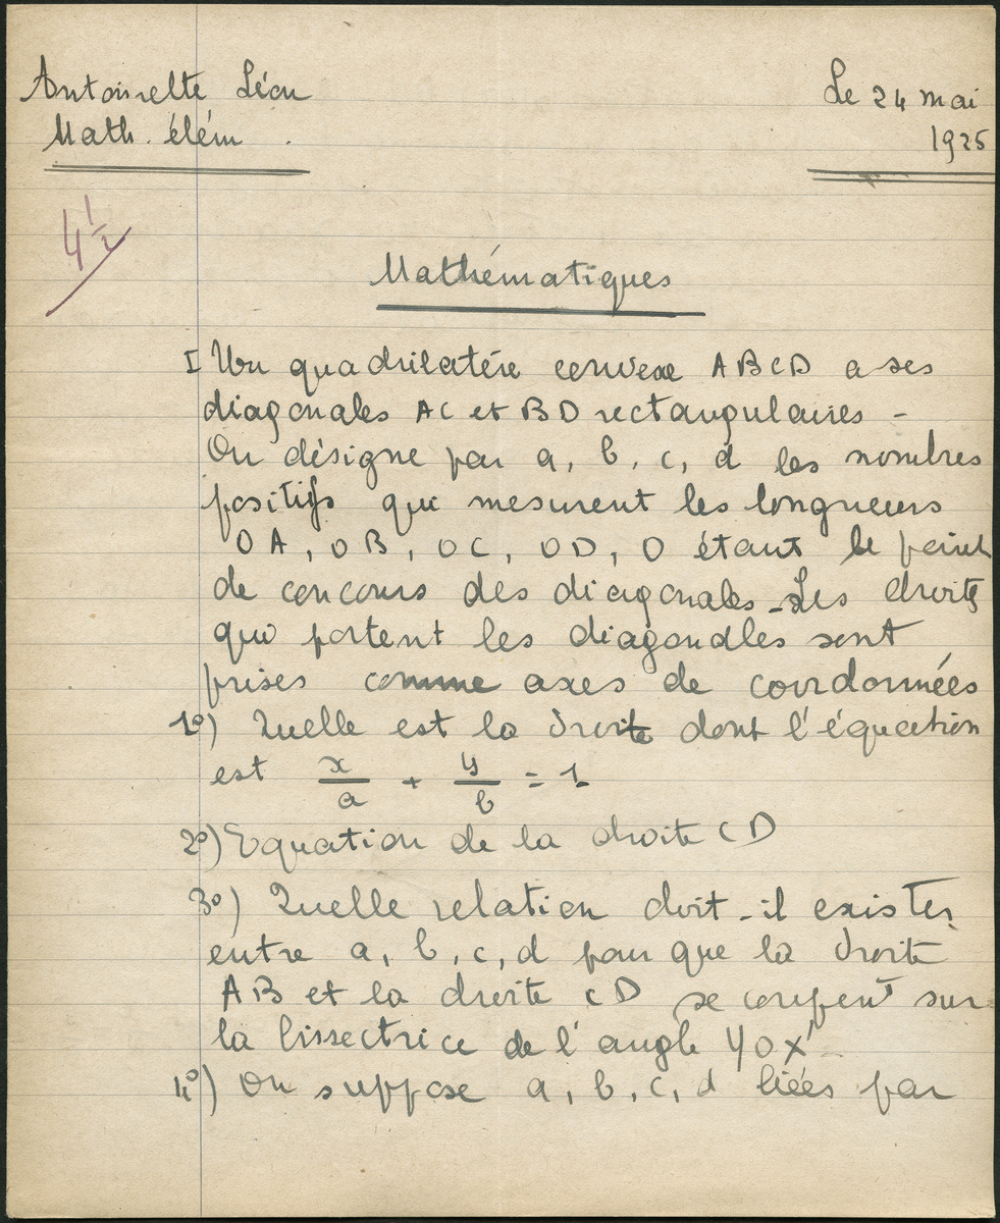 Antoinette Léon
Le 24 mai
Math. élém.
1925
4 1/2
Mathématiques
I Un quadrilatére convexe ABCD a ses
diagonales AC et BD rectangulaires -
On désigne par a, b, c, d les nombres
positifs qui mesurent les longueurs
OA, OB, OC, OD, O étant le point
de concours des diagonales - Les droites
qui portent les diagonales sont
prises comme axes de coordonnées
1º) Quelle est la droite dont l'équation
est x/a + y/b = 1
2º) Equation de la droite CD
3º) Quelle relation doit-il exister
entre a, b, c, d pour que la droite
AB et la droite CD se coupent sur
la bissectrice de l'angle YOX'
4º) On suppose a, b, c, d liées par